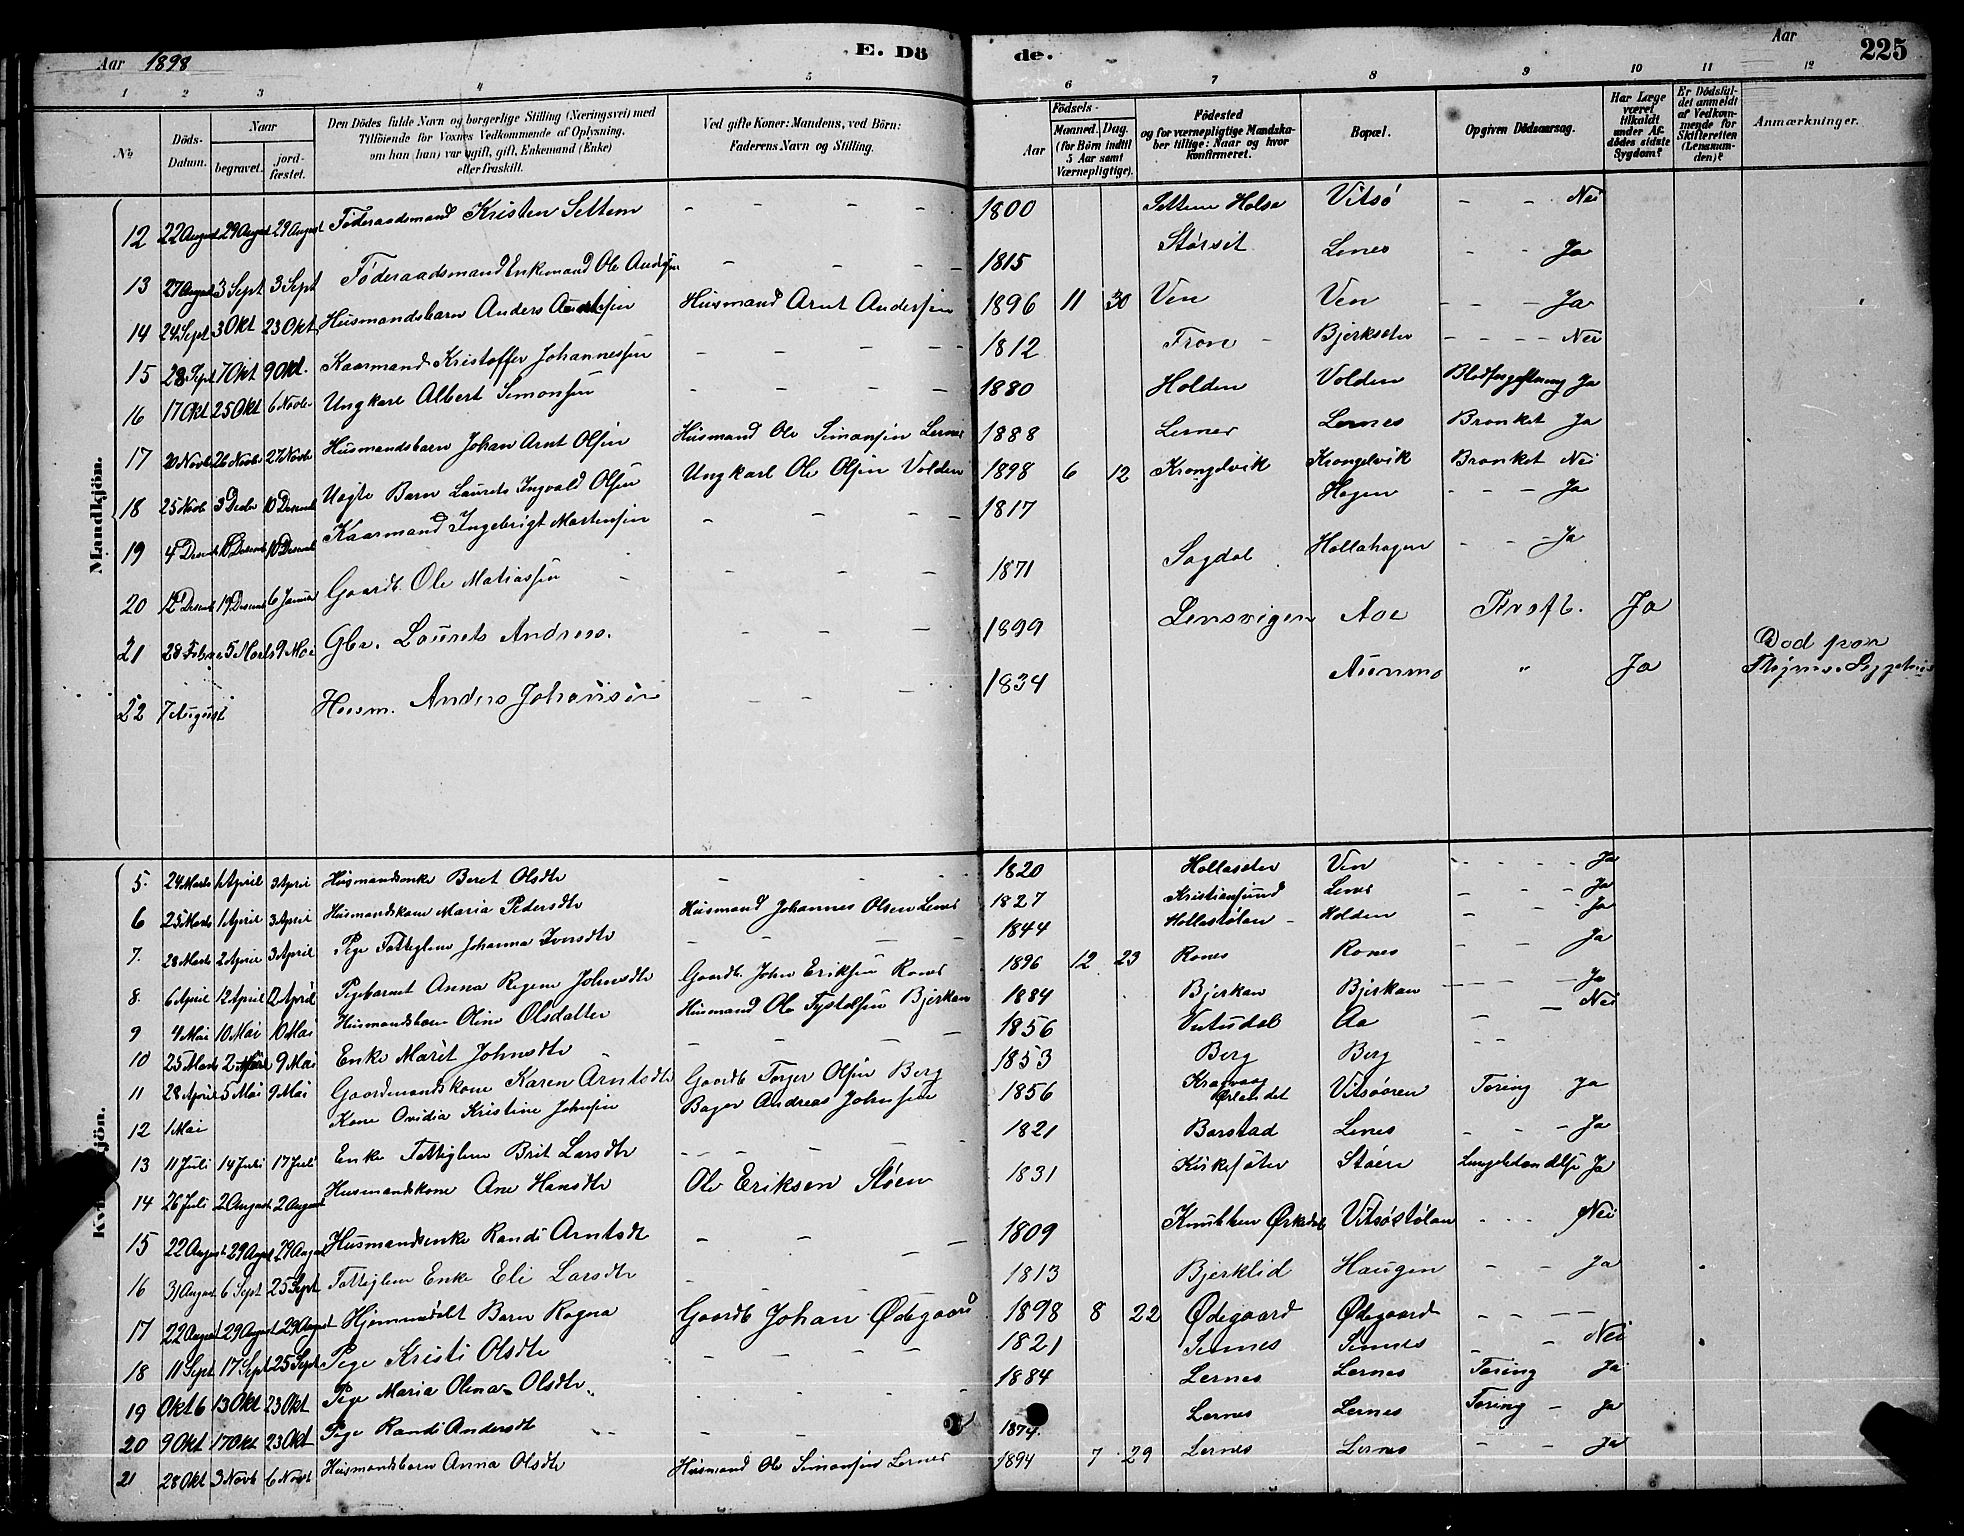 Aar 1898
E. Dö
de.
Aar
225
1 2 3 4 5 6 7 8 9 10 11 12
No
Döds-Datum.
Naar
begravet.
jord-fæstet.
Den Dödes fulde Navn og borgerlige Stilling (Næringsvei) med
Tilföiende for Voxnes Vedkommende af Oplysning,
om han (hun) var ugift, gift, Enkemand (Enke)
eller fraskilt.
Ved gifte Koner: Mandens, ved Börn:
Faderens Navn og Stilling.
Födsels-
Aar
Maaned. Dag.
(for Börn indtil
5 Aar samt
Værnepligtige).
Födested
og for værnepligtige Mandska-
ber tillige: Naar og hvor
konfirmeret.
Bopæl.
Opgiven Dödsaarsag.
Har Læge
været
tilkaldt
under Af-
dödes sidste
Sygdom?
Er Dödsfal-
det anmeldt
af Vedkom-
mende for
Skifteretten
(Lensman-
den)?
Anmærkninger.
Mandkjön.
12 22 August 29 August 29 August Föderaadsmand Kristen Settem - - - - 1800 Settem Halsa Vitsø - - Nei
13 27 August 3 Sept 3 Sept Föderaadsmand Enkemand Ole - - - - 1815 Lenes - - Ja
14 24 Sept 3 Okt 23 Okt Husmandsbarn Anders Husmand Arnt Anderssen 1896 11 30 Ven Ven - - - Ja
15 28 Sept 7 Okt 9 Okt. Kaarmand Kristoffer Johannessen - - - - 1812 Bjerkseter - - - - Nei
16 17 Okt 25 Okt 6 Novbr Ungkarl Albert Simonsen - - - - 1880 Holden Volden Blodforgiftning Ja
17 20 Novbr 26 Novbr 27 Novbr Husmandsbarn Johan Arnt Olsen Husmand Ole Simonsen Lernes 1888 Lernes Lernes Bronket Ja
18 25 Novb 3 Decbr 10 Desemb Uegte Barn Laurits Ingvald Olsen Ungkarl Ole Olsen Volden 1898 6 12 Krongelvik Krongelvik Bronket Nei
19 4 Desemb 10 Desemb 10 Desemb Kaarmand Ingebrigt Martensen - - - - 1817 Hagen - - - Ja
20 12 Desemb 19 Desemb 6 Januar Gaardb. Ole Matiassen - - - - 1871 Sagdal Hollahagen - - - Ja
21 28 Febr 5 Marts 9 Mai Gbr. Laurets Andress. - - - 1899 Lensvigen Aae Ja
22 7 August Husm. Anders Johansen - - 1834 Aunmo " Ja Död paa
5. 24 Marts 1 April 3 April Husmandsenke Beret Olsdtr - - - 1820 Hollaseter Ven - - - - Ja
6 25 Marts 1 April 3 April Husmandskone Maria Pedersdtr Husmand Johannes Olsen Lenes 1827 Kristiansund Lenes - - Ja
7. 28 Marts 2 April 3 April Pige Fattiglem Johanna Iversdtr - - - - 1844 Hollastølan - Holden - - Ja
8. 6 April 12 April 12 April Pigebarnet Anna Regine Johnsdtr Gaardb. John Eriksen Rones 1896 12 23 Rones Rones - - Ja
9 4 Mai 10 Mai 10 Mai Olina Olsdatter Husmand Ole Bjerkan 1884 Bjerkan Bjerkan - - - Ja
10 25 Marts 2 9 Mai Enke Marit Johnsdtr - - - - 1856 Aa - - Nei
11 28 April 5 Mai 9 Mai Gaardmandskone Karen Arntsdtr Gaardb Torger Olsen Berg 1853 Berg Berg - -
12 1 Mai Kone Ovidia Kristine Johnsen Bager Andreas Johnsen 1856 Kragvaag
Ørlandet Vitsøøren Tæring Ja
13 11 Juli 14 Juli 17 Juli Enke Fattiglem Brit Larsdtr - - - - 1821 Barstad Lenes - - - Ja
14 26 Juli 2 August 2 August Husmandskone Ane Hansdtr Ole Eriksen Støen 1831 Støen Ja
15 22 August 29 August 29 August Husmandsenke Randi Arntsdt - - - 1809 Ørkedal Vitsøstølan - - - Nei
16 31 August 6 Sept 25 Sept Fattiglem Enke Eli Larsdtr - - - 1813 Bjerklid Haugen - - Ja
17 22 August 29 August 29 August Hjemmedøbt Barn Ragna Gaardb Johan Ødegaard 1898 8 22 Ødegaard Ødegaard - - - -
18 11 Sept 17 Sept 25 Sept Pige Kristi Olsdtr - - - - 1821 - - Nei
19 Okt 6 13 Okt 23 Okt Pige Maria Olina Olsdtr - - - - 1884 Lernes Lernes Tæring Ja
20 9 Okt 17 Okt 23 Okt Pige Randi Andersdtr - - 1874 Lernes Lernes Tæring - Ja
21 28 Okt 3 Novb 6 Novbr Husmandsbarn Anna Olsdtr Husmand Ole Simonsen Lernes 1894 7 29 Lernes Lernes - - Ja